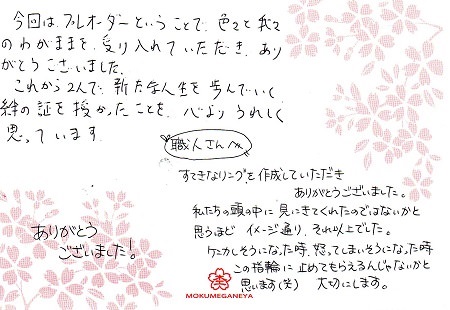 今回は、フルオーダーということで、色々と我々
のわがままを、受け入れていただき、あり
がとうございました。
これから2人で、新たな人生を歩んでいく
絆の証を授かったことを、心よりうれしく
思っています。
職人さんへ
すてきなリングを作成していただき
ありがとうございました。
私たちの頭の中に見にきてくれたのではないかと
思うほど イメージ通り、それ以上でした。
ケンカしそうになった時、怒ってしまいそうになった時
この指輪に止めてもらえるんじゃないかと
思います(笑) 大切にします。
ありがとう
ございました!
MOKUMEGANEYA